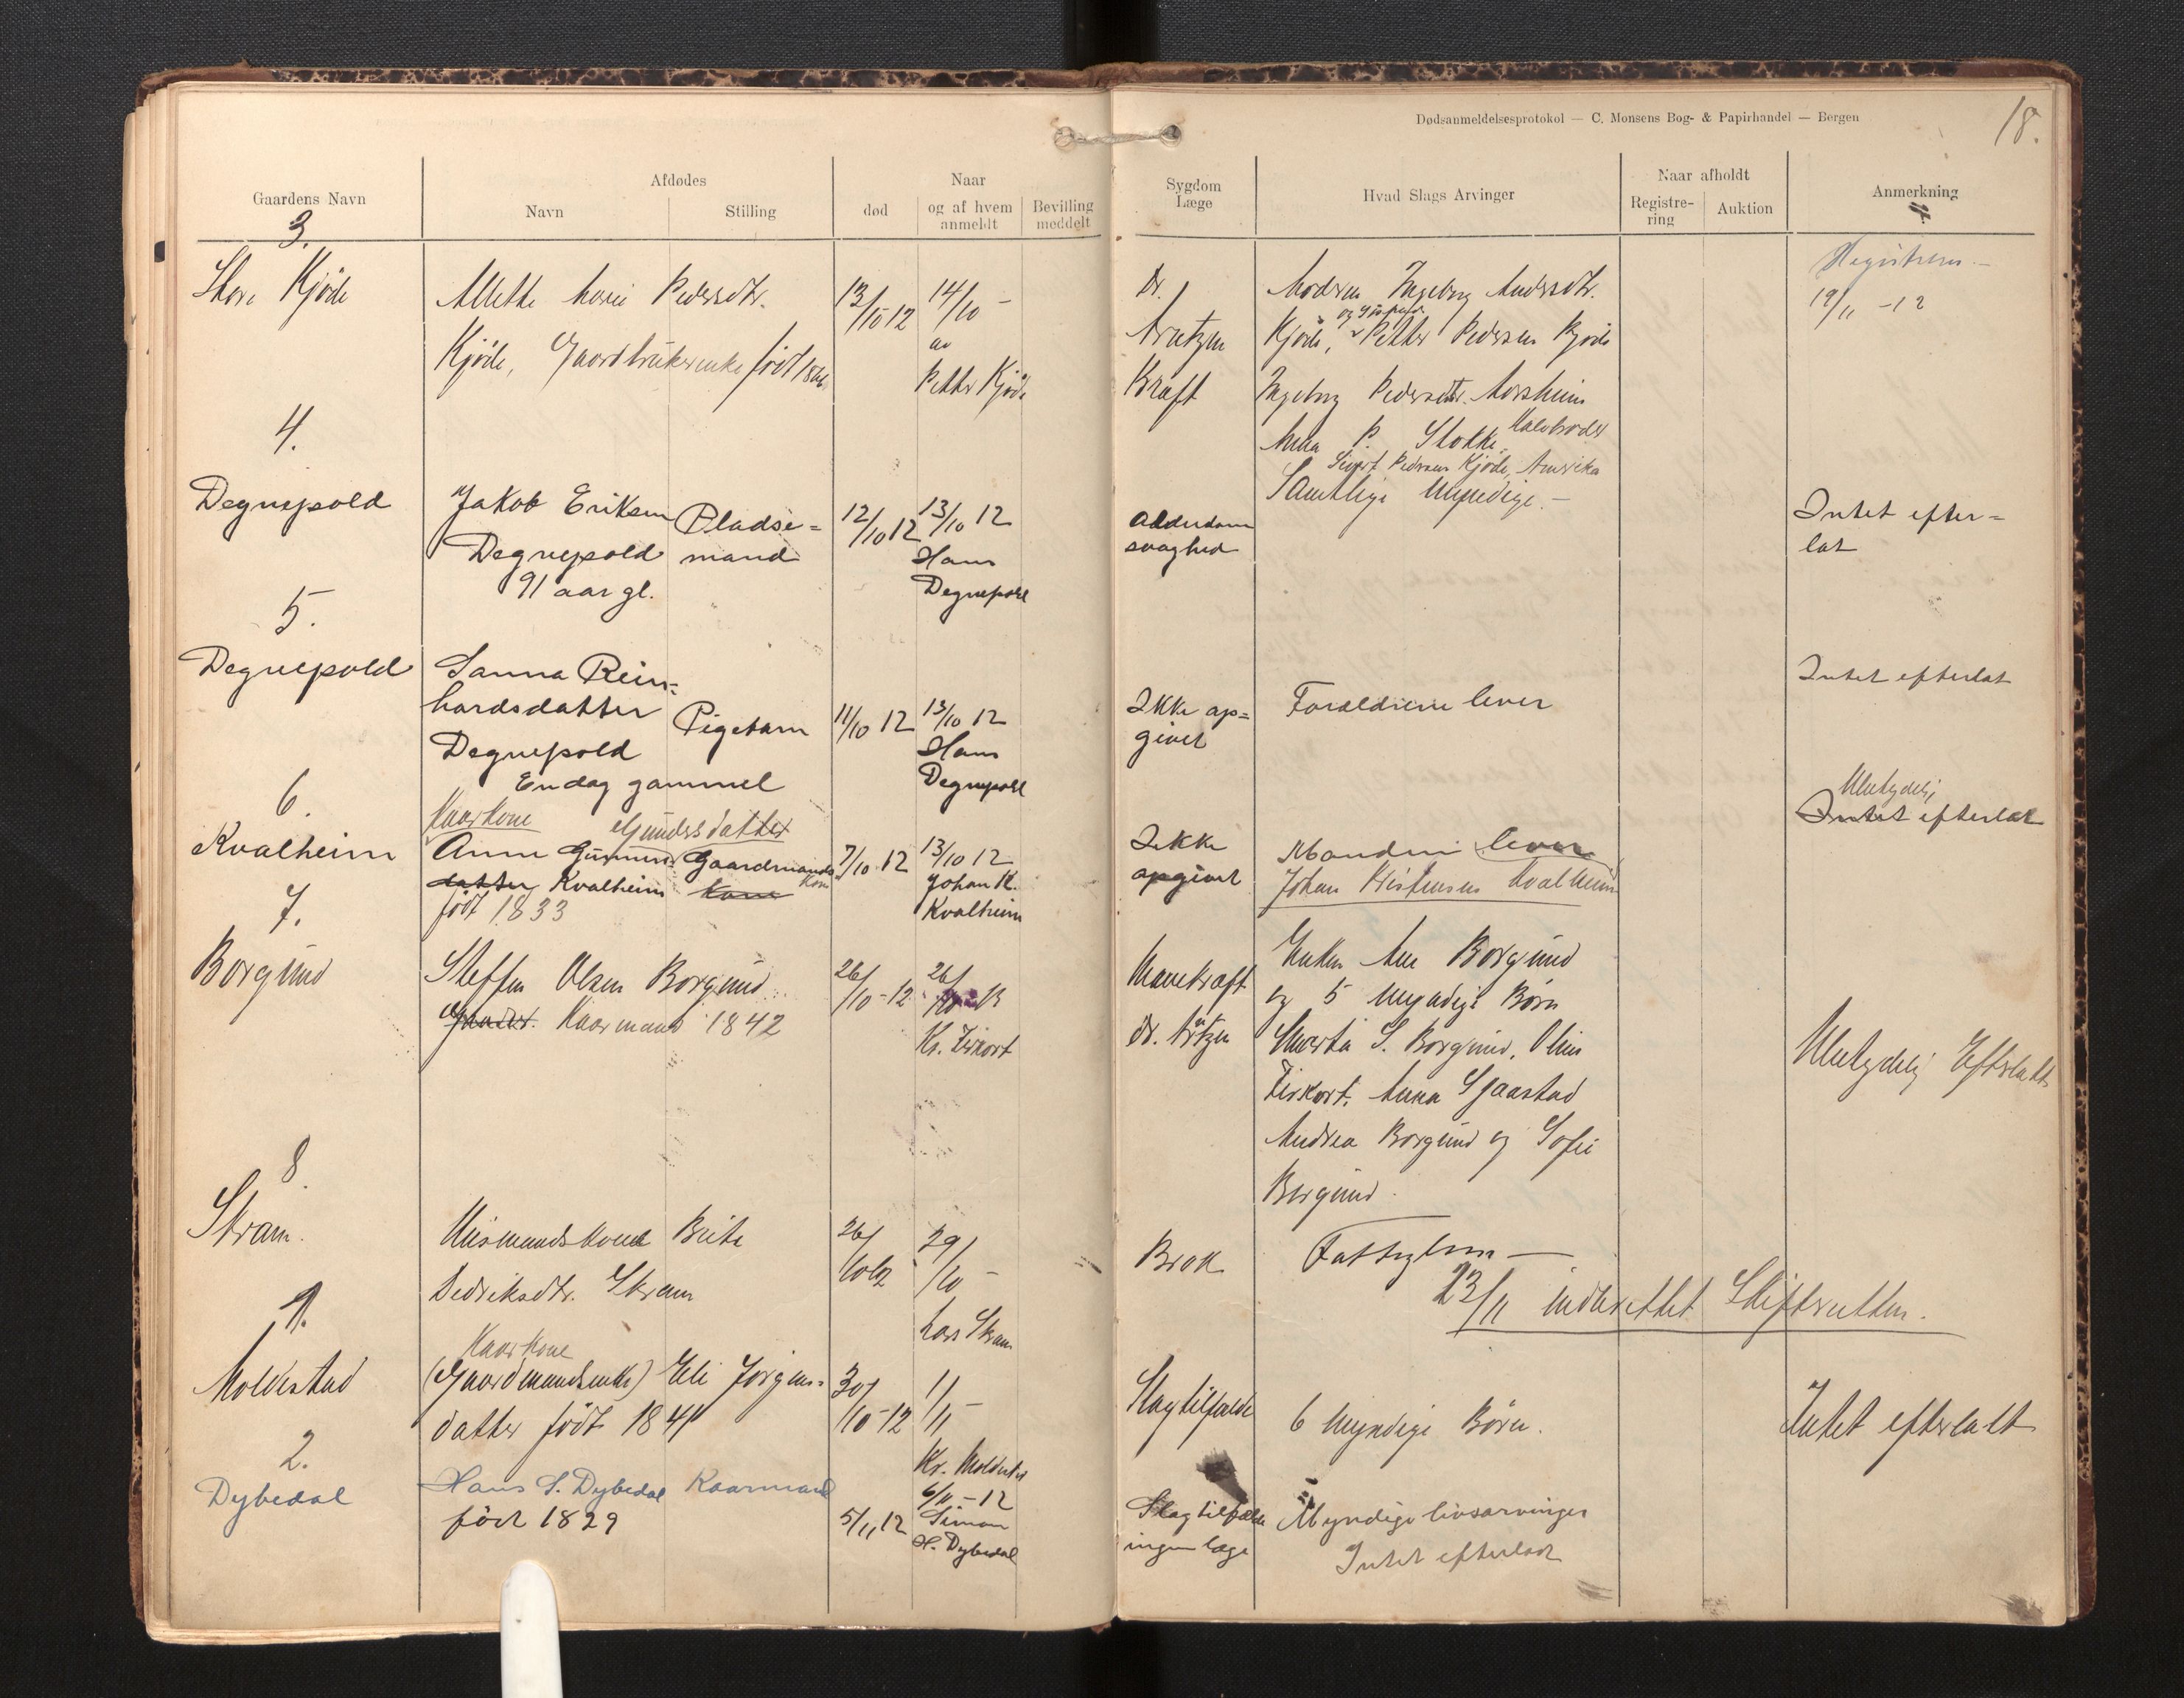 Dødsanmeldelsesprotokol — C. Monsens Bog- & Papirhandel — Bergen
18.
Gaardens Navn
Afdødes
Navn
Stilling
Naar
død
og af hvem anmeldt
Bevilling meddelt
Sygdom Læge
Hvad Slags Arvinger
Naar afholdt
Registrering
Auktion
Anmerkning
3.
Store Kjöde
Allette Marie Pedersdtr.
Kjöde, Gaardbrukerenke født
13/10 12
14/10 -
av
Petter Kjöde
Dr.
Arntzen
Kraft
Modren Ingeborg Andersdtr.
Kjöde, Petter Pedersen Kjöde
Ingeborg Pedersdtr. Aarsheim
Anna P. Stokke
Sivert Pedersen Kjöde, Amerika
Samtlige Myndige.-
19/11 -12
4.
Degnepold
Jakob Eriksen
Degnepold
91 aar gl.
Pladse=
mand
12/10 12
13/10 12
Hans
Degnepold
Alderdom
svaghed
Intet efter=
lat
5.
Degnepold
Sanna Rein=
hardsdatter
Degnepold
En dag gammel
Pigebarn
11/10 12
13/10 12
Hans
Degnepold
Ikke op=
givet
Forældrene lever
Intet efterlat
6.
Kvalheim
Kaarkone
Gundersdatter
Anne
datter Kvalheim
født 1833
Gaardmands
kone
7/10 12
13/10 12
Johan K.
Kvalheim
Ikke
opgivet
Manden lever
Johan Kristensen Kvalheim
Ubetydelig
Intet efterlat
7.
Borgund
Steffen Olsen Borgund
Kaarmand 1842
26/10-12
26/
Kr. Firkort
Mavekræft
Enken Ane Borgund
og 5 Myndige Børn
S. Borgund, Oline
Firkort, Anna Sjaastad
Andrea Borgund og Sofie
Borgund.
Ubetydelig Efterlatt
8.
Skram.
Husmandskone Brite
Didriksdtr. Skram
26/10 12
29/10 -
Lars Skram
Brok
Fattiglem —
23/11 indberettet Skifteretten.
1.
Moldestad
Kaarkone
(Gaardmandsenke) Eli Jörgens=
datter født 1841
30/10-12
1/11 -
Kr. Moldestad
Slagtilfælde
6 Myndige Børn.
Intet efterlatt
2.
Dybedal
Hans S. Dybedal Kaarmand
født 1829
5/11 12
6/11 - 12
Simon
H. Dybedal
Slagtilfælde
ingen læge
Myndige livsarvinger
Intet efterladt